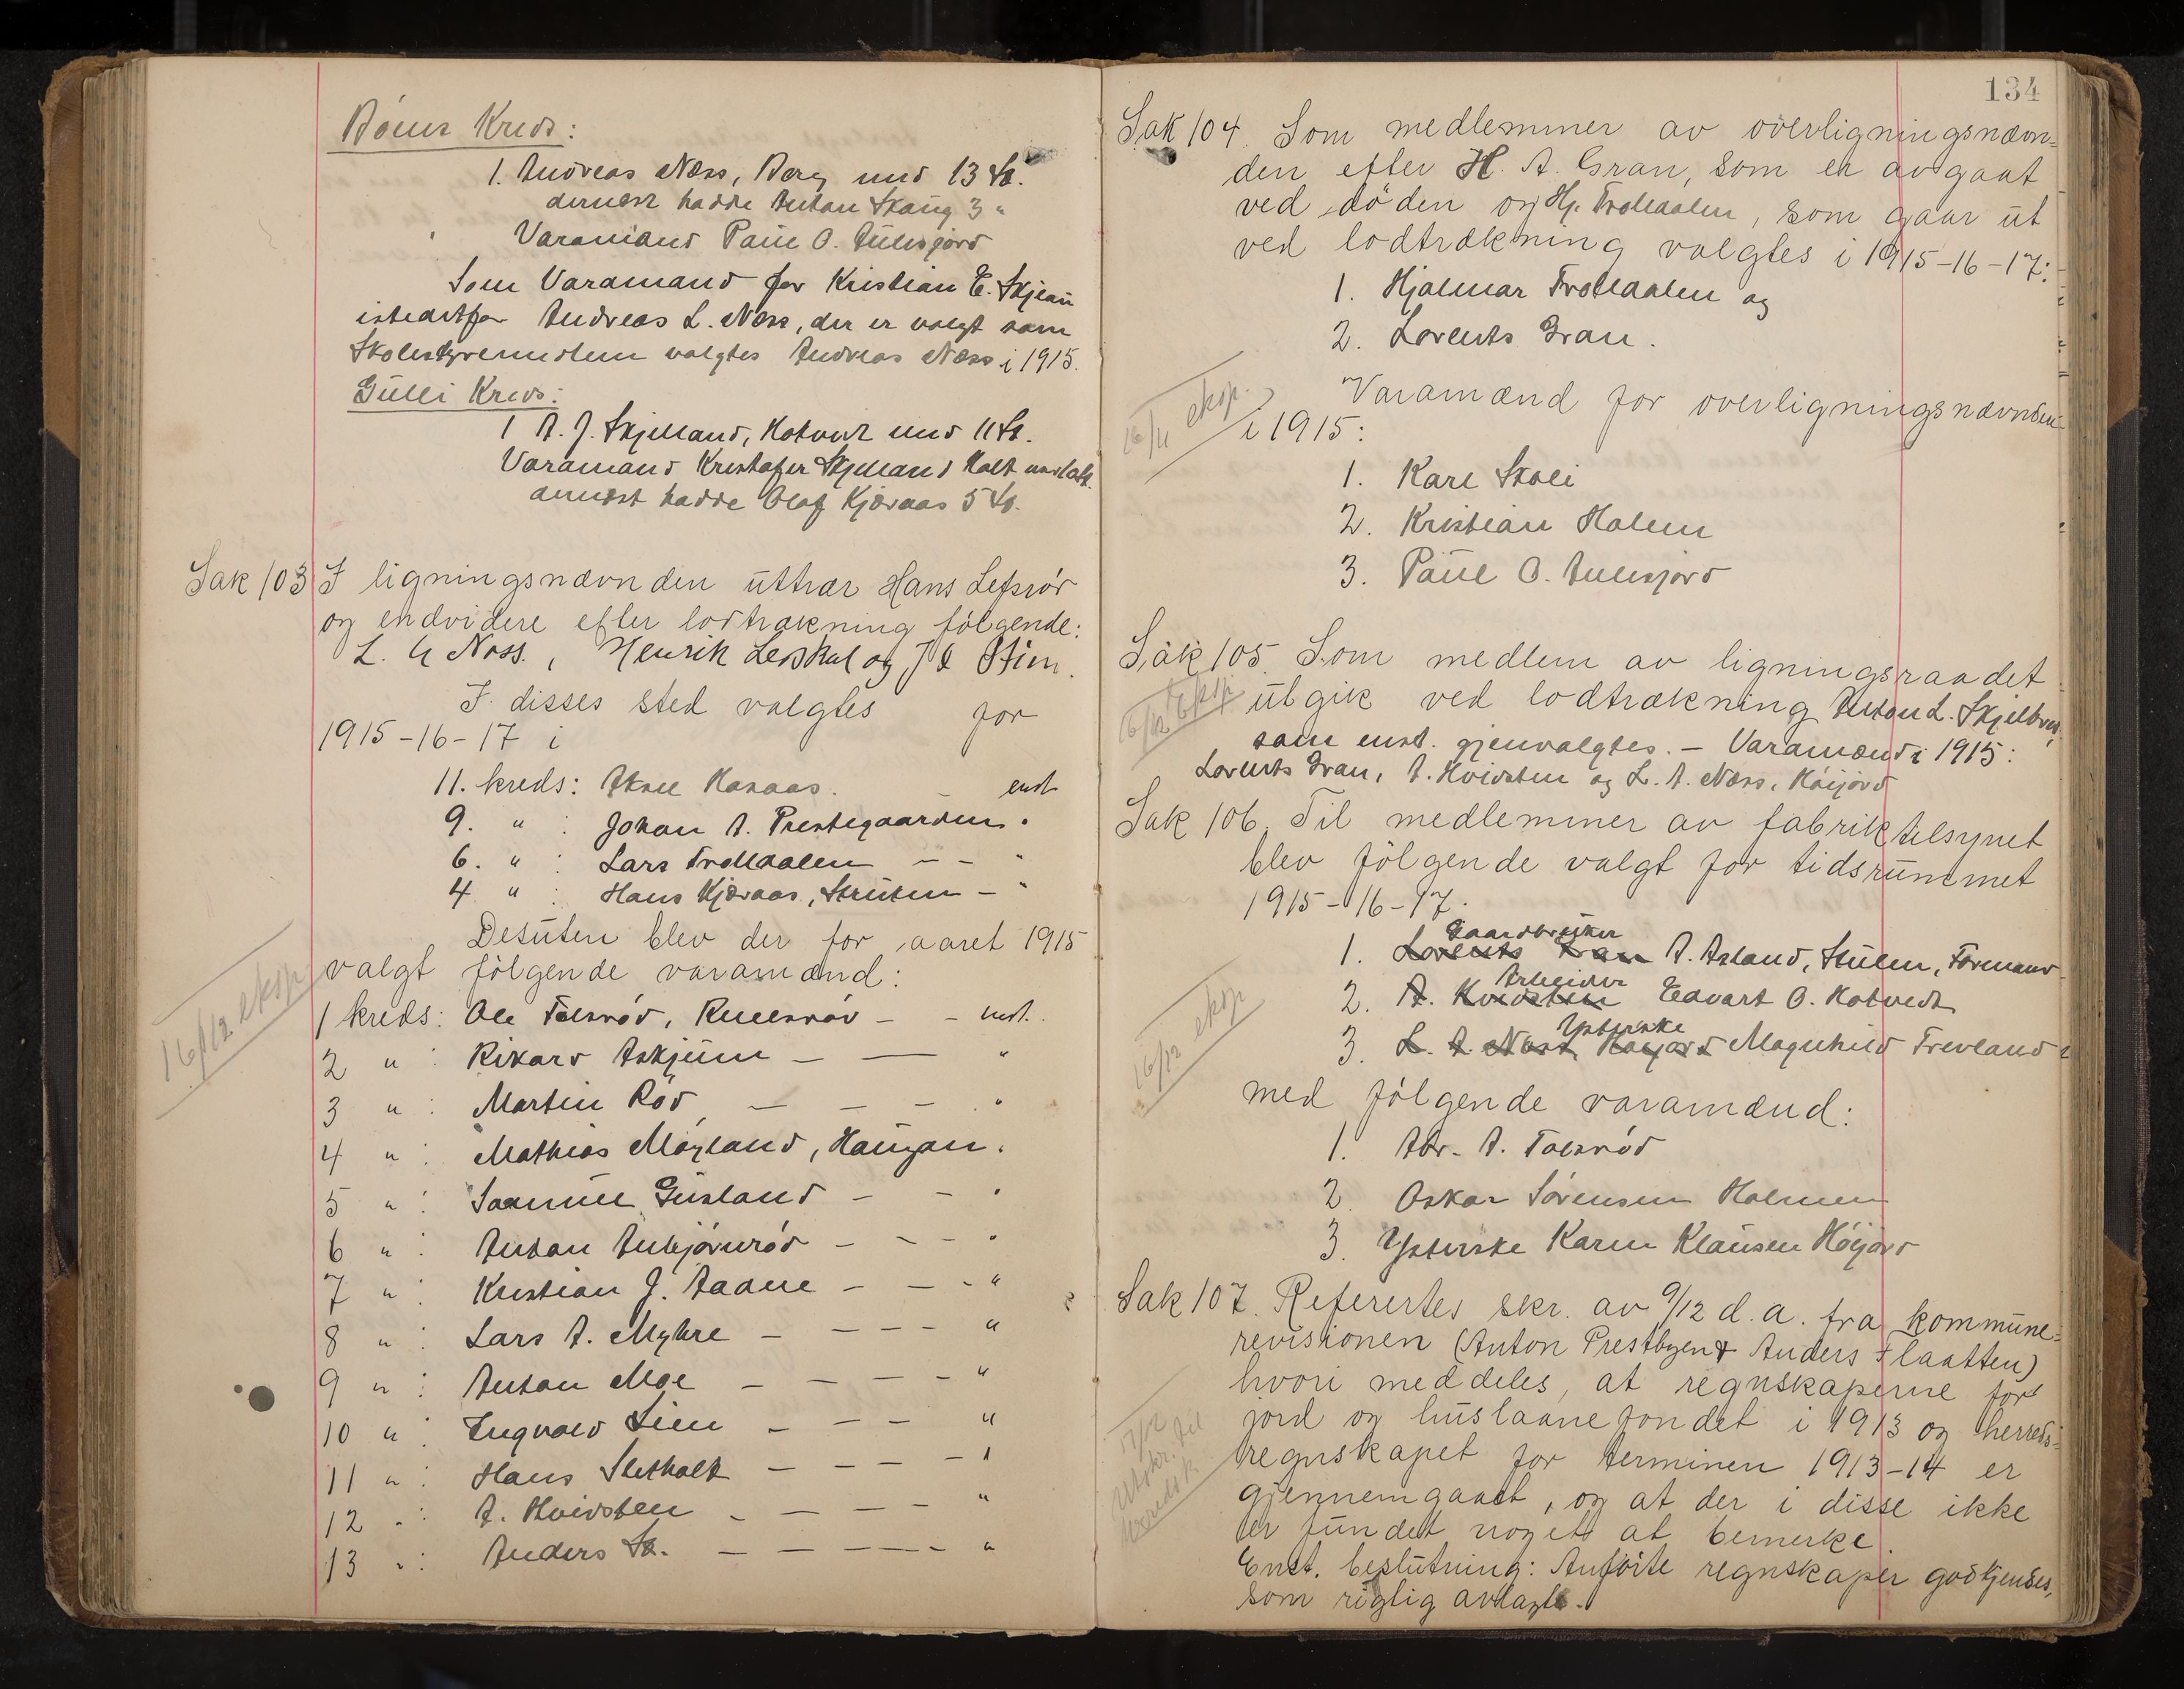 Kreds:
1. Andreas Næss, Berg med 13 St.
dernæst hadde Anton Skaug 3 "
Varamand Paul O. Aulesjord
Som Varamand for Kristian E. Skjeau
istedetfor Andreas L. Næss, der er valgt som
Skolestyremedlem valgtes Andreas Næss i 1915.
Gulli Kreds:
1 A. J. Skjelland, Kotvedt med 11 St.
Varamand Kristofer Skjelland Holt
dernæst hadde Olaf Kjæraas 5 St.
Sak 103 I ligningsnævnden uttrær Hans Lefsrød
og endvidere efter lodtrækning følgende:
L. A Næss., Henrik og J
I disses sted valgtes for
1915-16-17 i
11. kreds: Aksel Haraas. enst.
9. " : Johan A. Prestegaarden "
6. " : Lars Trolldalen - - "
4 " : Hans Kjæraas, Struten - "
Desuten blev der for aaret 1915
valgt følgende varamænd:
16/12 eksp.
1 kreds: Ole Tolsrød, - - enst.
2 " : Rikard Askjum - — "
3 " : Martin Rød - - - "
4 " : Mathias Møyland, Haugan "
5 " : Samuel Gusland - - "
6 " : Anton Aulebjørnrød - - - "
7 " : Kristian J. Aadne - - - "
8 " : Lars A. Myhre - - - - "
9 " : Anton Moe - - - - "
10 " : Ingvald Lien - - - "
11 " : Hans Sletholt - - - - "
12 " : A. Hvidsten - - - - "
13 " : Anders - - - - "
134
Sak 104. Som medlemmer av overligningsnævn=
den efter H. A. Gran, som er avgaat
ved døden og Hj. Trolldalen, som gaar ut
ved lodtrækning valgtes i 1915-16-17:
1. Hjalmar Trolldalen og
2. Lorents Gran.
16/11 eksp.
Varamænd for overligningsnævnden
i 1915:
1. Karl Skoli
2. Kristian Holmen
3. Paul O. Aulesjord
Sak 105. Som medlem av ligningsraadet
16/12 eksp.
utgik ved lodtrækning Anton L. Skjelbred,
som enst. gjenvalgtes. - Varamænd i 1915:
Lorents Gran, A. Hvidsten og L. A. Næss, Høijord
Sak 106. Til medlemmer av fabriktilsynet
blev følgende valgt for tidsrummet
1915-16-17.
Gaardbruker
1. Lorents Gran A. Asland, Stulen, Formand
Arbeider
2. A. Hvidsten Edvart O. Kotvedt
Ysterske
3. L. A. Næss, Høijord Magnhild Trevland
16/12 eksp.
med følgende varamænd:
1. Abr. A. Tolsrød
2. Oskar Sørensen Holmen
3. Ysterske Karen Klausen Høijord
Sak 107. Referertes skr. av 9/12 d. a. fra kommune=
revisionen (Anton Prestbyen & Anders Flaatten)
hvori meddeles, at regnskaperne for
jord og huslaanefondet i 1913 og herreds=
17/12
Utskr. til
regnskapet for terminen 1913-14 er
gjennemgaaet, og at der i disse ikke
er fundet noget at bemerke.
Enst. beslutning: Anførte regnskaper godkjendes,
som rigtig avlagte.